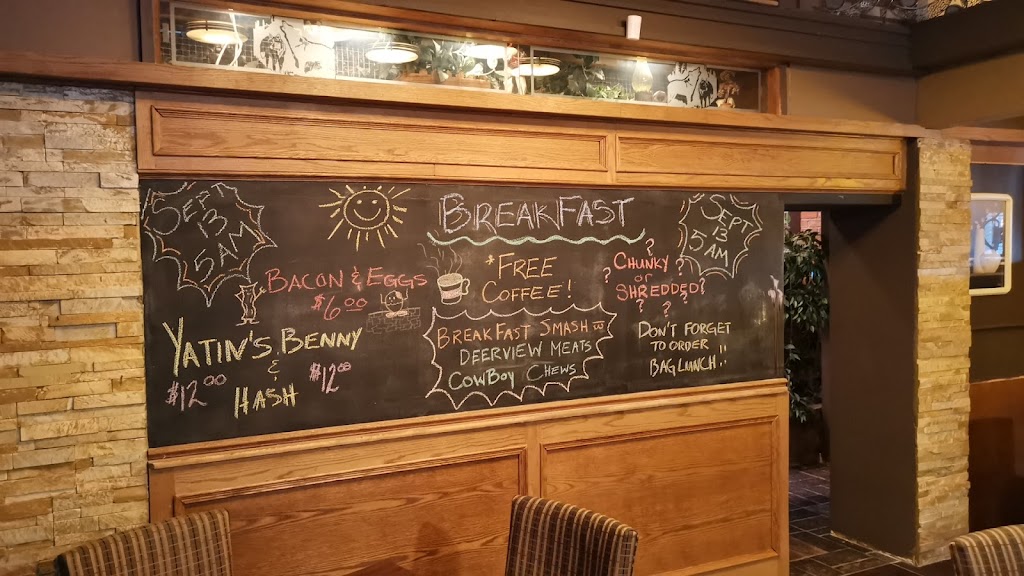 SEPT
13
5AM
BREAKFAST
SEPT
13
5AM
BACON & EGGS
$6.00
* FREE
COFFEE!
? CHUNKY ?
? OR
SHREDDED?
? ?
YATIN'S BENNY
&
HASH
$12.00
$12.00
BREAKFAST SMASH TO
DEERVIEW MEATS
COWBOY CHEWS
DON'T FORGET
TO ORDER
BAG LUNCH!!